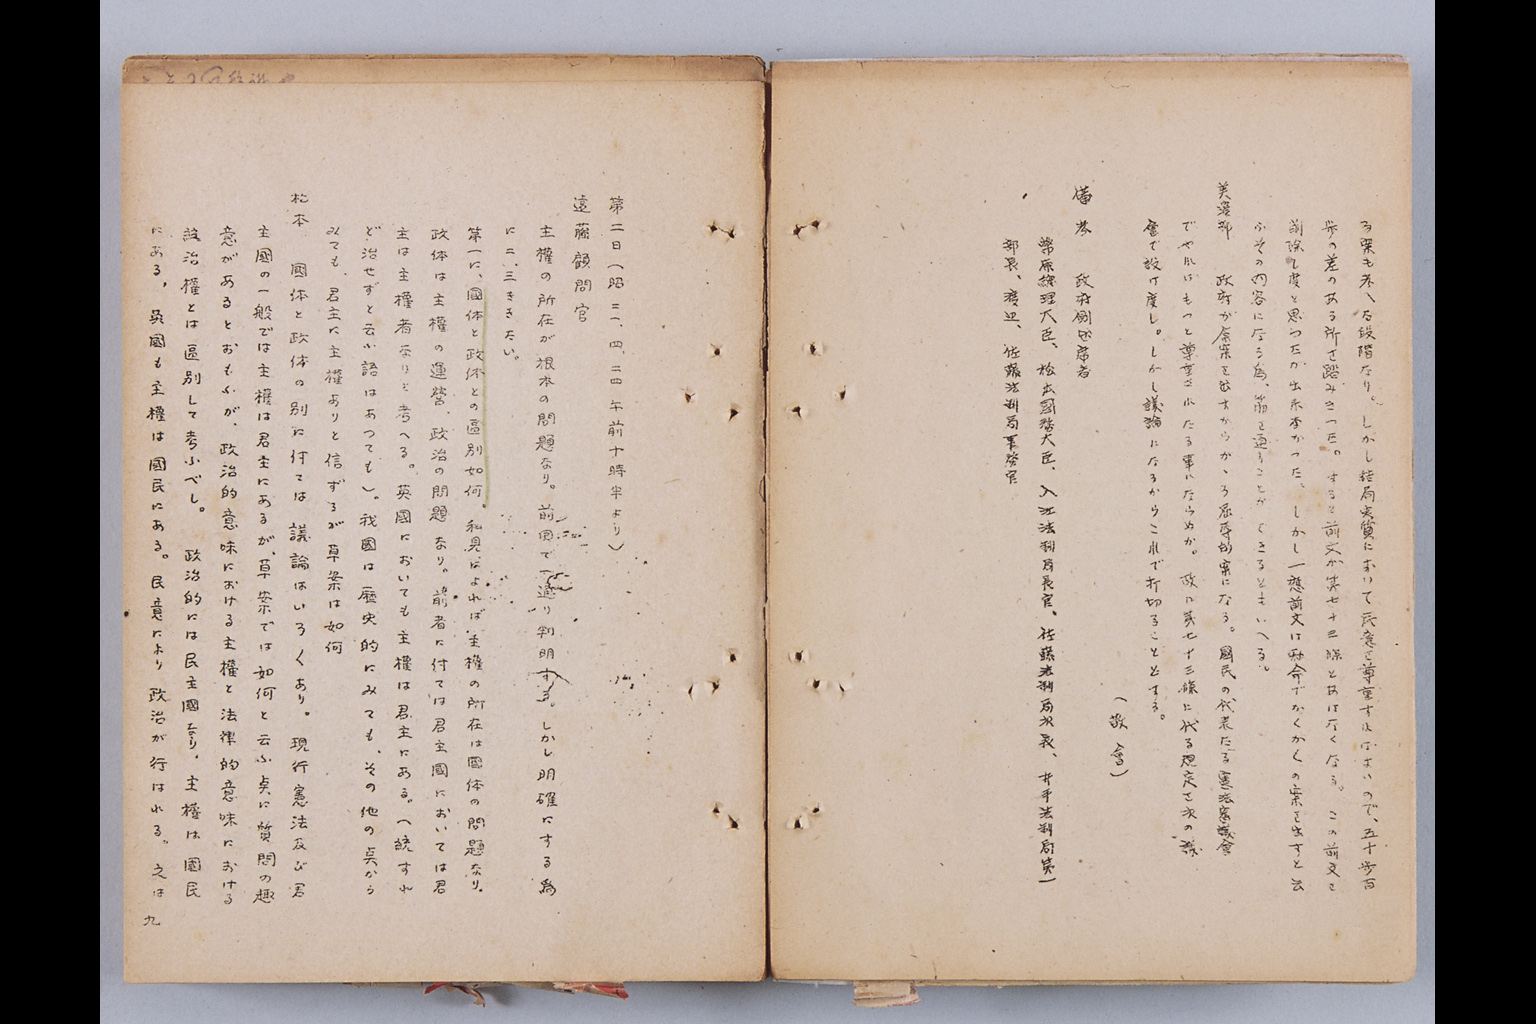 る案も考へる段階なり。しかし結局実質において民意を尊重すればよいので、五十歩百
歩の差のある所を踏みきつた。すると前文が第七十三條とあはなくなる。この前文を
削除し度と思つたが出来なかつた。しかし一應前文は勅命でなくかくの案を出すと云
ふその内容になる為、筋を通すことができるともいへる。
美濃部　政府が原案を出すからかゝる屈辱的案になる。國民の代表たる憲法審議會
でやればもつと尊重されたる事にならぬか。政に第七十三條に代る規定を次の議
會で設け度し。しかし議論になるからこれで打切ることとする。
（散會）
備考　政府側出席者
幣原總理大臣、松本國務大臣、入江法制局長官、佐藤法制局次長、井手法制局第一
部長、渡辺、佐藤法制局事務官
第二日（昭二一、四、二四午前十時半より）
遠藤顧問官
主權の所在が根本の問題なり。前回で一通り判明する。しかし明確にする為
に二、三ききたい。
第一に、國体と政体との區別如何。私見によれば主權の所在は國体の問題なり。
政体は主權の運營、政治の問題なり。前者に付ては君主國においては君
主は主權者なりと考へる。英國においても主權は君主にある。（統すれ
ど治せずと云ふ語はあつても）。我國は歴史的にみても、その他の点から
みても、君主に主權ありと信ずるが草案は如何
松本　國体と政体の別に付ては議論はいろくあり。現行憲法及び君
主國の一般では主權は君主にあるが、草案では如何と云ふ点に質問の趣
意があるとおもふが、政治的意味における主權と法律的意味における
政治權とは區別して考ふべし。政治的には民主國なり。主權は國民
にある。英國も主權は國民にある。民意により政治が行はれる。之は
九